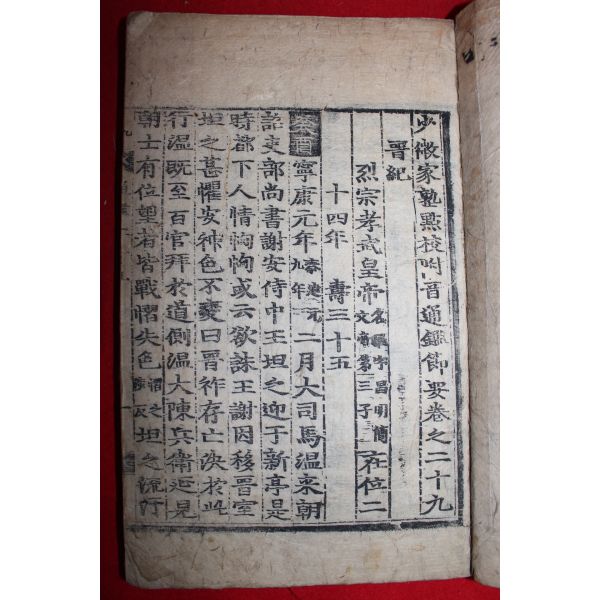 少微家塾點校附音通鑑節要卷之二十九
晋紀
烈宗孝武皇帝名曜字昌明簡文帝第三子在位二
十四年 壽三十五
癸酉寧康元年秦建元九年二月大司馬温來朝
詔吏部尚書謝安侍中王坦之迎于新亭是
時都下人情恟恟或云欲誅王謝因移晋室
坦之甚懼安神色不變曰晋祚存亡决於此
行温旣至百官拜於道側温大陳兵衛延見
朝士有位望者皆戰慴失色慴之坦之流汗